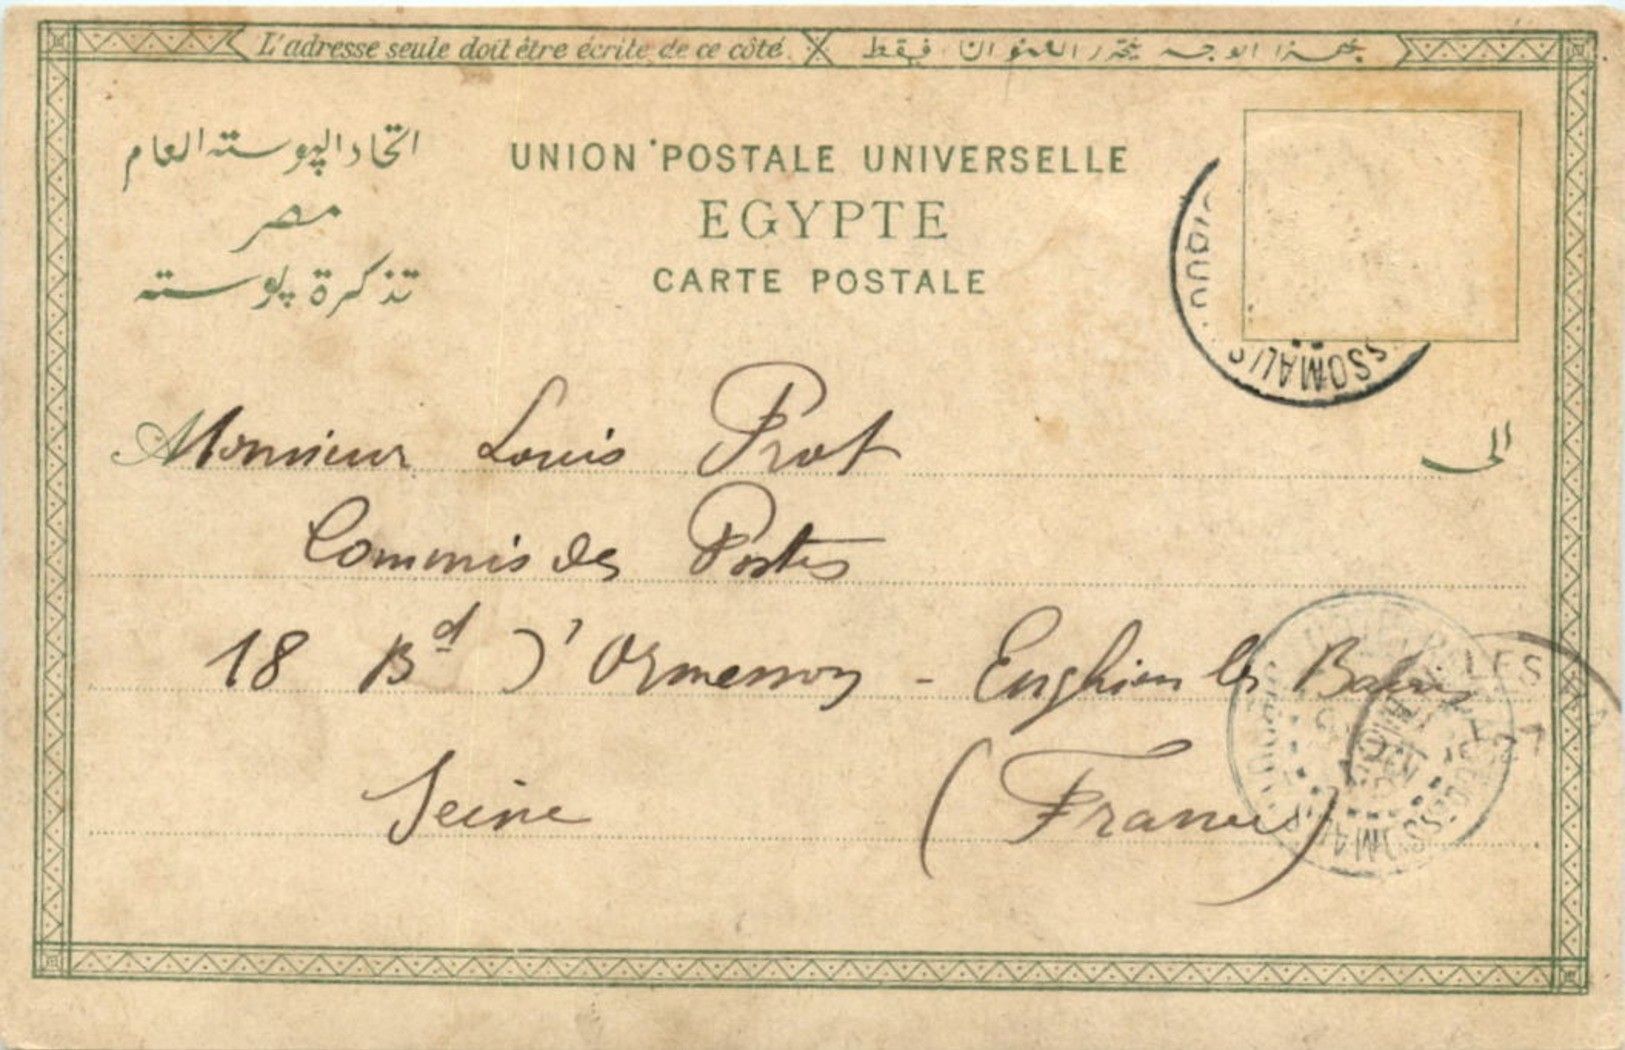 L'adresse seule doit être écrite de ce côté.
بهذا الوجه يحرر العنوان فقط
اتحاد الپوسته العام
مصر
تذكرة پوسته
UNION POSTALE UNIVERSELLE
EGYPTE
CARTE POSTALE
DJIBOUTI
SSOMALIS
الى
Monsieur Louis Prot
Commis des Postes
18 Bd d'Ormesson - Enghien les Bains
Seine (France)
LES